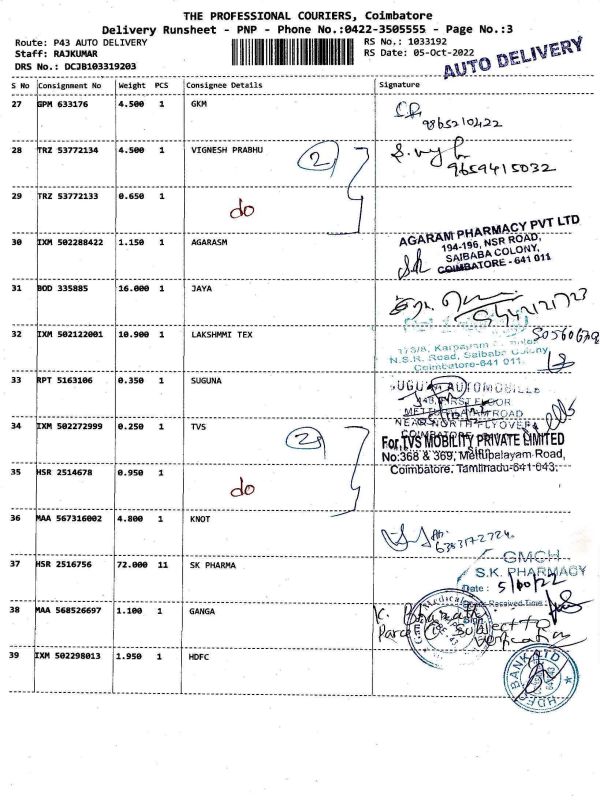 THE PROFESSIONAL COURIERS, Coimbatore
Delivery Runsheet - PNP - Phone No.:0422-3505555 - Page No.:3
Route: P43 AUTO DELIVERY
Staff: RAJKUMAR
DRS No.: DCJB103319203
RS No.: 1033192
RS Date: 05-Oct-2022
AUTO DELIVERY
S No Consignment No Weight PCS Consignee Details Signature
27 GPM 633176 4.500 1 GKM
9865210422
28 TRZ 53772134 4.500 1 VIGNESH PRABHU
2
9659415032
29 TRZ 53772133 0.650 1
do
30 IXM 502288422 1.150 1 AGARASM
AGARAM PHARMACY PVT LTD
194-196, NSR ROAD,
SAIBABA COLONY,
COIMBATORE - 641 011
31 BOD 335885 16.000 1 JAYA
32 IXM 502122001 10.900 1 LAKSHMMI TEX
N.S.R. Road, Saibaba Colony,
Coimbatore-641 011.
33 RPT 5163106 0.350 1 SUGUNA
SUGUNA AUTOMOBILES
FIRST FLOOR
METTUPALAYAM ROAD
NEAR NORTH FLYOVER
COIMBATORE
34 IXM 502272999 0.250 1 TVS
2
For TVS MOBILITY PRIVATE LIMITED
No:368 & 369, Mettupalayam Road,
Coimbatore. Tamilnadu-641 043.
35 HSR 2514678 0.950 1
do
36 MAA 567316002 4.800 1 KNOT
6383172724
37 HSR 2516756 72.000 11 SK PHARMA
GMCH
S.K. PHARMACY
Date: 5/10/22
Received Time:
38 MAA 568526697 1.100 1 GANGA
K. Bharath
Parcel Subject to
Verification
39 IXM 502298013 1.950 1 HDFC
HDFC BANK LTD